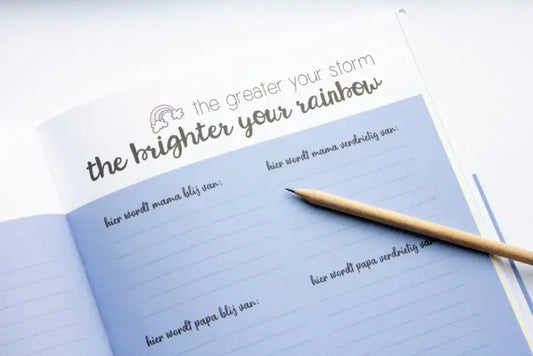 the greater your storm
the brighter your rainbow
hier wordt mama blij van:
hier wordt mama verdrietig van:
hier wordt papa blij van:
hier wordt papa verdrietig van: